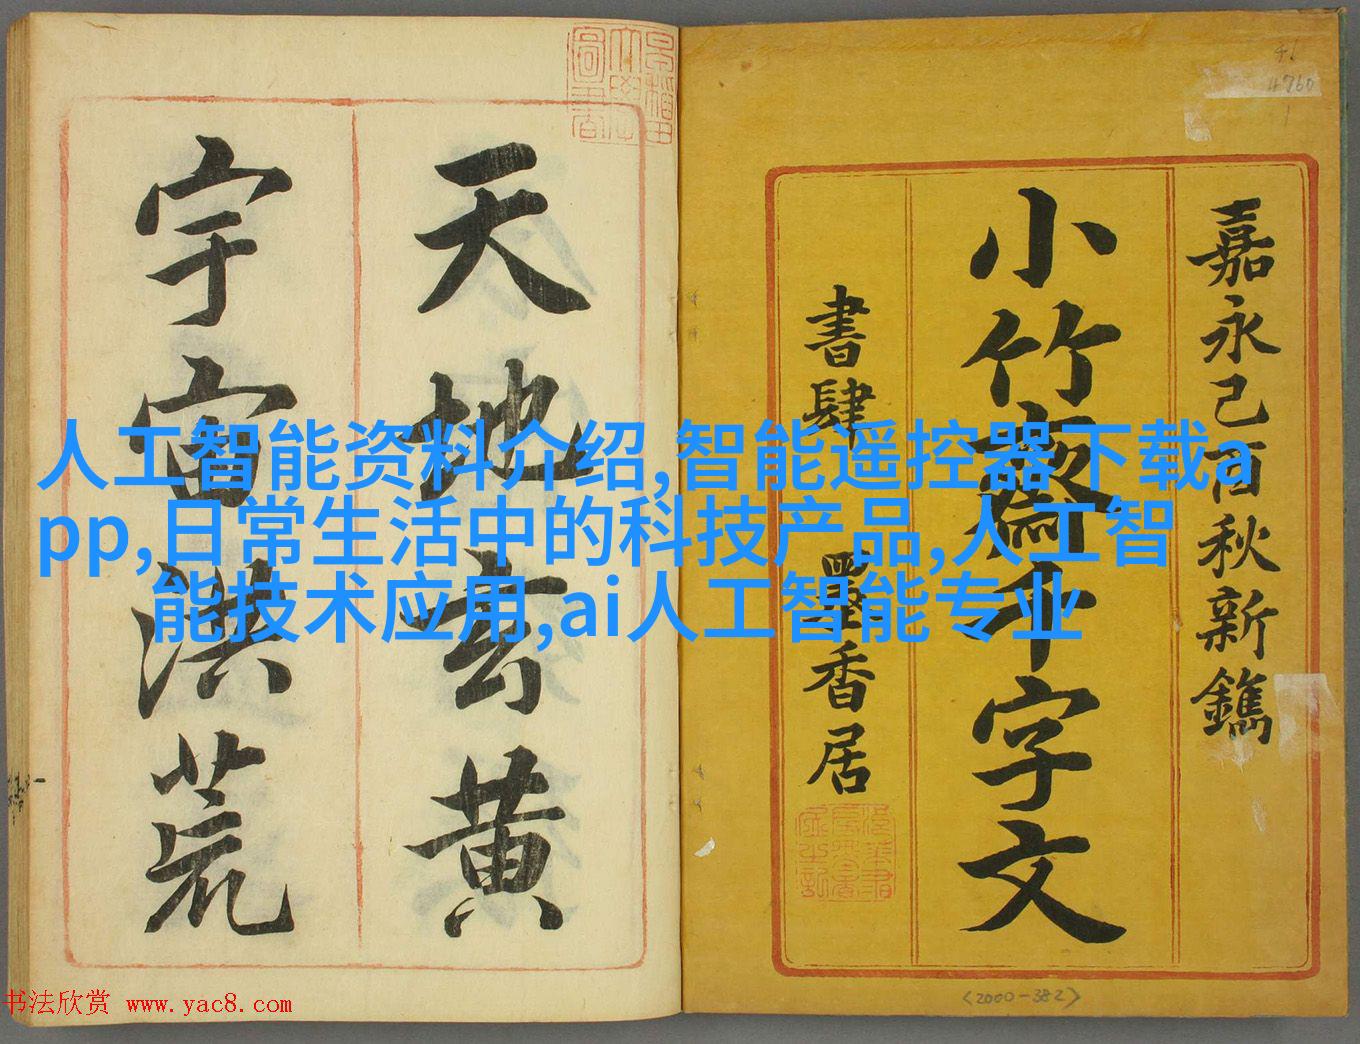 嘉永己酉秋新鐫
小竹齋千字文
書肆 墨香居
天地玄黃
宇宙洪荒
人工智能资料介绍,智能遥控器下载a
pp,日常生活中的科技产品,人工智
能技术应用,ai人工智能专业
4760
<2000-382>
书法欣赏 www.yac8.com